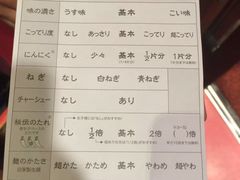 味の濃さ うす味 基本 こい味
こってり度 なし あっさり 基本 こってり
にんにく なし 少々 基本 1/2片分 1片分
ねぎ なし 白ねぎ 青ねぎ
チャーシュー なし あり
秘伝のたれ なし 1/2倍 基本 2倍 ( )倍
麺のかたさ 超かた かため 基本 やわめ 超やわ